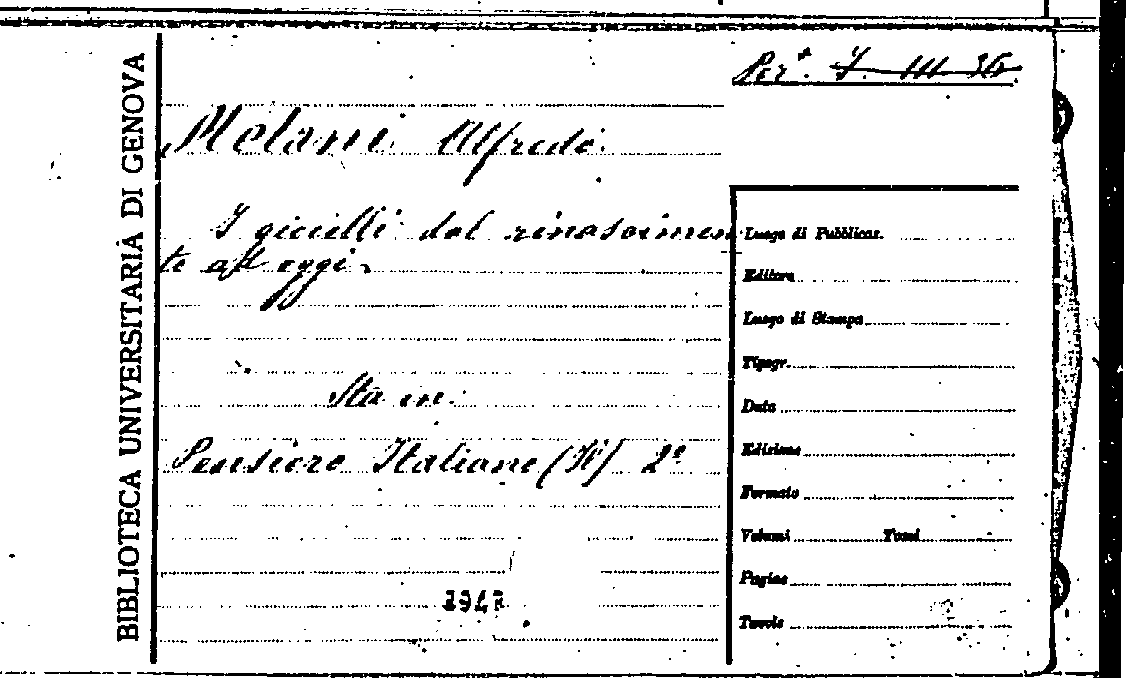 BIBLIOTECA UNIVERSITARIA DI GENOVA
Per.ᵃ 7. III 36
Melani Alfredo.
I gioielli dal rinascimen
to ad oggi.
Sta in:
Pensiero Italiano (Il) 2°
1947
Luogo di Pubblicaz.
Editore
Luogo di Stampa
Tipogr.
Data
Edizione
Formato
Volumi Tomi
Pagine
Tavole